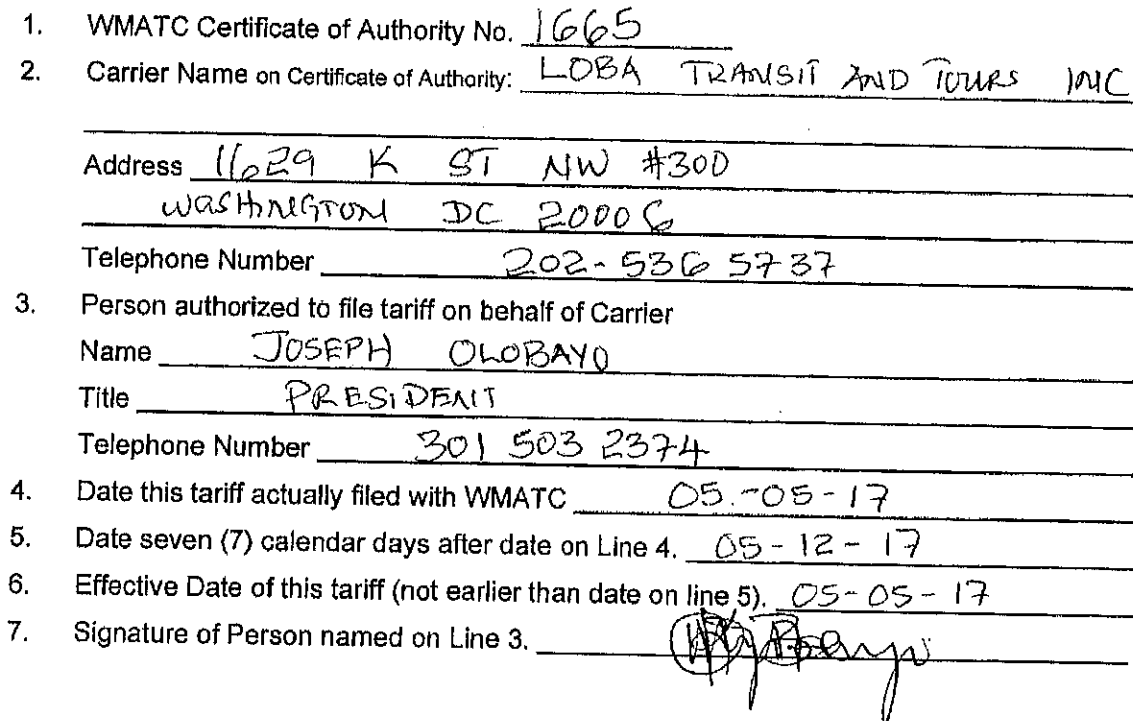 1. WMATC Certificate of Authority No. 1665
2. Carrier Name on Certificate of Authority: LOBA TRANSIT AND TOURS INC
Address 1629 K ST NW #300
WASHINGTON DC 20006
Telephone Number 202-536 5737
3. Person authorized to file tariff on behalf of Carrier
Name JOSEPH OLOBAYO
Title PRESIDENT
Telephone Number 301 503 2374
4. Date this tariff actually filed with WMATC 05.-05-17
5. Date seven (7) calendar days after date on Line 4. 05-12-17
6. Effective Date of this tariff (not earlier than date on line 5). 05-05-17
7. Signature of Person named on Line 3.